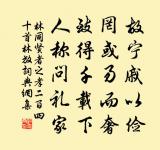 故宁戚以俭
罔或易而奢
致得千載下
人称問礼家
林同賢者之孝二百四
十首林放詞典網集